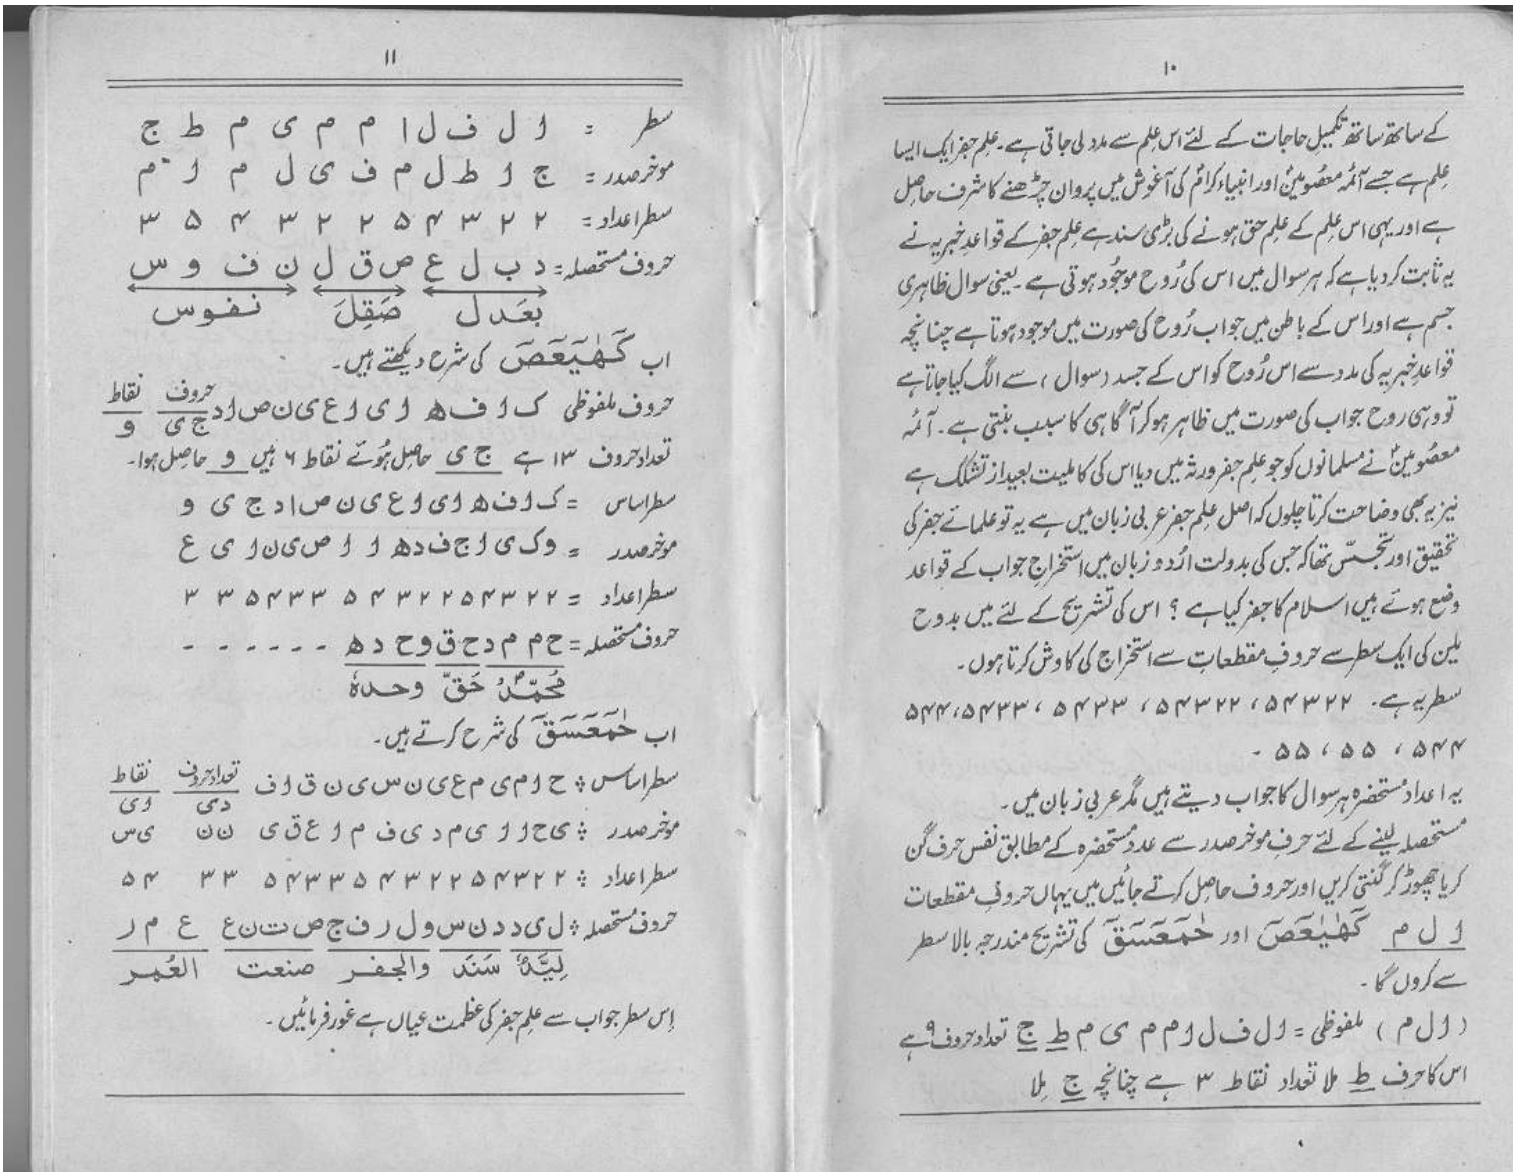 ۱۰
کے ساتھ ساتھ تکمیل حاجات کے لئے اس علم سے مدد لی جاتی ہے۔ علم جفر ایک ایسا
علم ہے جسے آئمہ معصومینؑ اور انبیاء کرامؑ کی آغوش میں پروان چڑھنے کا شرف حاصل
ہے اور یہی اس علم کے علم حق ہونے کی بڑی سند ہے علم جفر کے قواعد خبریہ نے
یہ ثابت کر دیا ہے کہ ہر سوال میں اس کی رُوح موجُود ہوتی ہے۔ یعنی سوال ظاہری
جسم ہے اور اس کے باطن میں جواب رُوح کی صورت میں موجود ہوتا ہے چنانچہ
قواعدِ خبریہ کی مدد سے اس رُوح کو اس کے جسد (سوال) سے الگ کیا جاتا ہے
تو وہی روح جواب کی صورت میں ظاہر ہو کر آگاہی کا سبب بنتی ہے۔ آئمہ
معصُومینؑ نے مسلمانوں کو جو علم جفر ورثہ میں دیا اس کی کاملیت بعید از تشکک ہے
نیز یہ بھی وضاحت کرتا چلوں کہ اصل علم جفر عربی زبان میں ہے یہ تو علمائے جفر کی
تحقیق اور تجسّس تھا کہ جس کی بدولت اُردو زبان میں استخراجِ جواب کے قواعد
وضع ہوئے ہیں اسلام کا جفر کیا ہے ؟ اس کی تشریح کے لئے میں بدوح
یلین کی ایک سطر سے حروفِ مقطعات سے استخراج کی کاوش کرتا ہوں۔
سطر یہ ہے۔ ۵۴۳۲۲ ، ۵۴۳۲۲ ، ۵۴۳۳ ، ۵۴۳۳ ، ۵۴۴
۵۴۴ ، ۵۵ ، ۵۵ ۔
یہ اعداد مستحضرہ ہر سوال کا جواب دیتے ہیں مگر عربی زبان میں۔
مستحصلہ لینے کے لئے حرفِ موخر صدر سے عدد مستحضرہ کے مطابق نفس حرف گن
کر یا چھوڑ کر گنتی کریں اور حروف حاصل کرتے جائیں میں یہاں حروفِ مقطعات
ا ل م كٓهٰيٰعٓصٓ اور حٰمٓعٓسٓقٓ کی تشریح مندرجہ بالا سطر
سے کروں گا۔
( ا ل م ) ملفوظی = ا ل ف ل ا م م ی م ط ج تعداد حروف ۹ ہے
اس کا حرف ط ملا تعداد نقاط ۳ ہے چنانچہ ج ملا
۱۱
سطر = ا ل ف ل ا م م ی م ط ج
موخر صدر = ج ا ط ل م ف ی ل م ا م
سطر اعداد = ۲ ۲ ۳ ۴ ۵ ۲ ۲ ۳ ۴ ۵ ۳
حروف مستحصلہ = د ب ل ع ص ق ل ن ف و س
بعَدل صَقِلَ نفوس
اب كٓهٰيٰعٓصٓ کی شرح دیکھتے ہیں۔
حروف ملفوظی ک ا ف ھ ا ی ا ع ی ن ص ا د حروف ج ی نقاط و
تعداد حروف ۱۳ ہے ج ی حاصل ہُوئے نقاط ۶ ہیں و حاصل ہوا۔
سطر اساس = ک ا ف ھ ا ی ا ع ی ن ص ا د ج ی و
موخر صدر = و ک ی ا ج ف د ھ ا ا ص ی ن ا ی ع
سطر اعداد = ۲ ۲ ۳ ۴ ۵ ۲ ۲ ۳ ۴ ۵ ۳ ۳ ۴ ۵ ۳ ۳
حروف مستحصلہ = ح م م د ح ق و ح د ہ - - - - - -
مُحمّدؐ حَقّ وحدہٗ
اب حٰمٓعٓسٓقٓ کی شرح کرتے ہیں۔
سطر اساس : ح ا م ی م ع ی ن س ی ن ق ا ف تعداد حروف د ی نقاط ا ی
موخر صدر : ی ح ا ا ی م د ی ف م ا ع ق ی ن ن ی س
سطر اعداد : ۲ ۲ ۳ ۴ ۵ ۲ ۲ ۳ ۴ ۵ ۳ ۳ ۴ ۵ ۳ ۳ ۴ ۵
حروف مستحصلہ : ل ی د د ن س و ل ر ف ج ص ت ن ع ع م ر
لِیَدٗ سَنَدَ والجفر صنعت العُمر
اِس سطر جواب سے علم جفر کی عظمت عیاں ہے غور فرمائیں۔